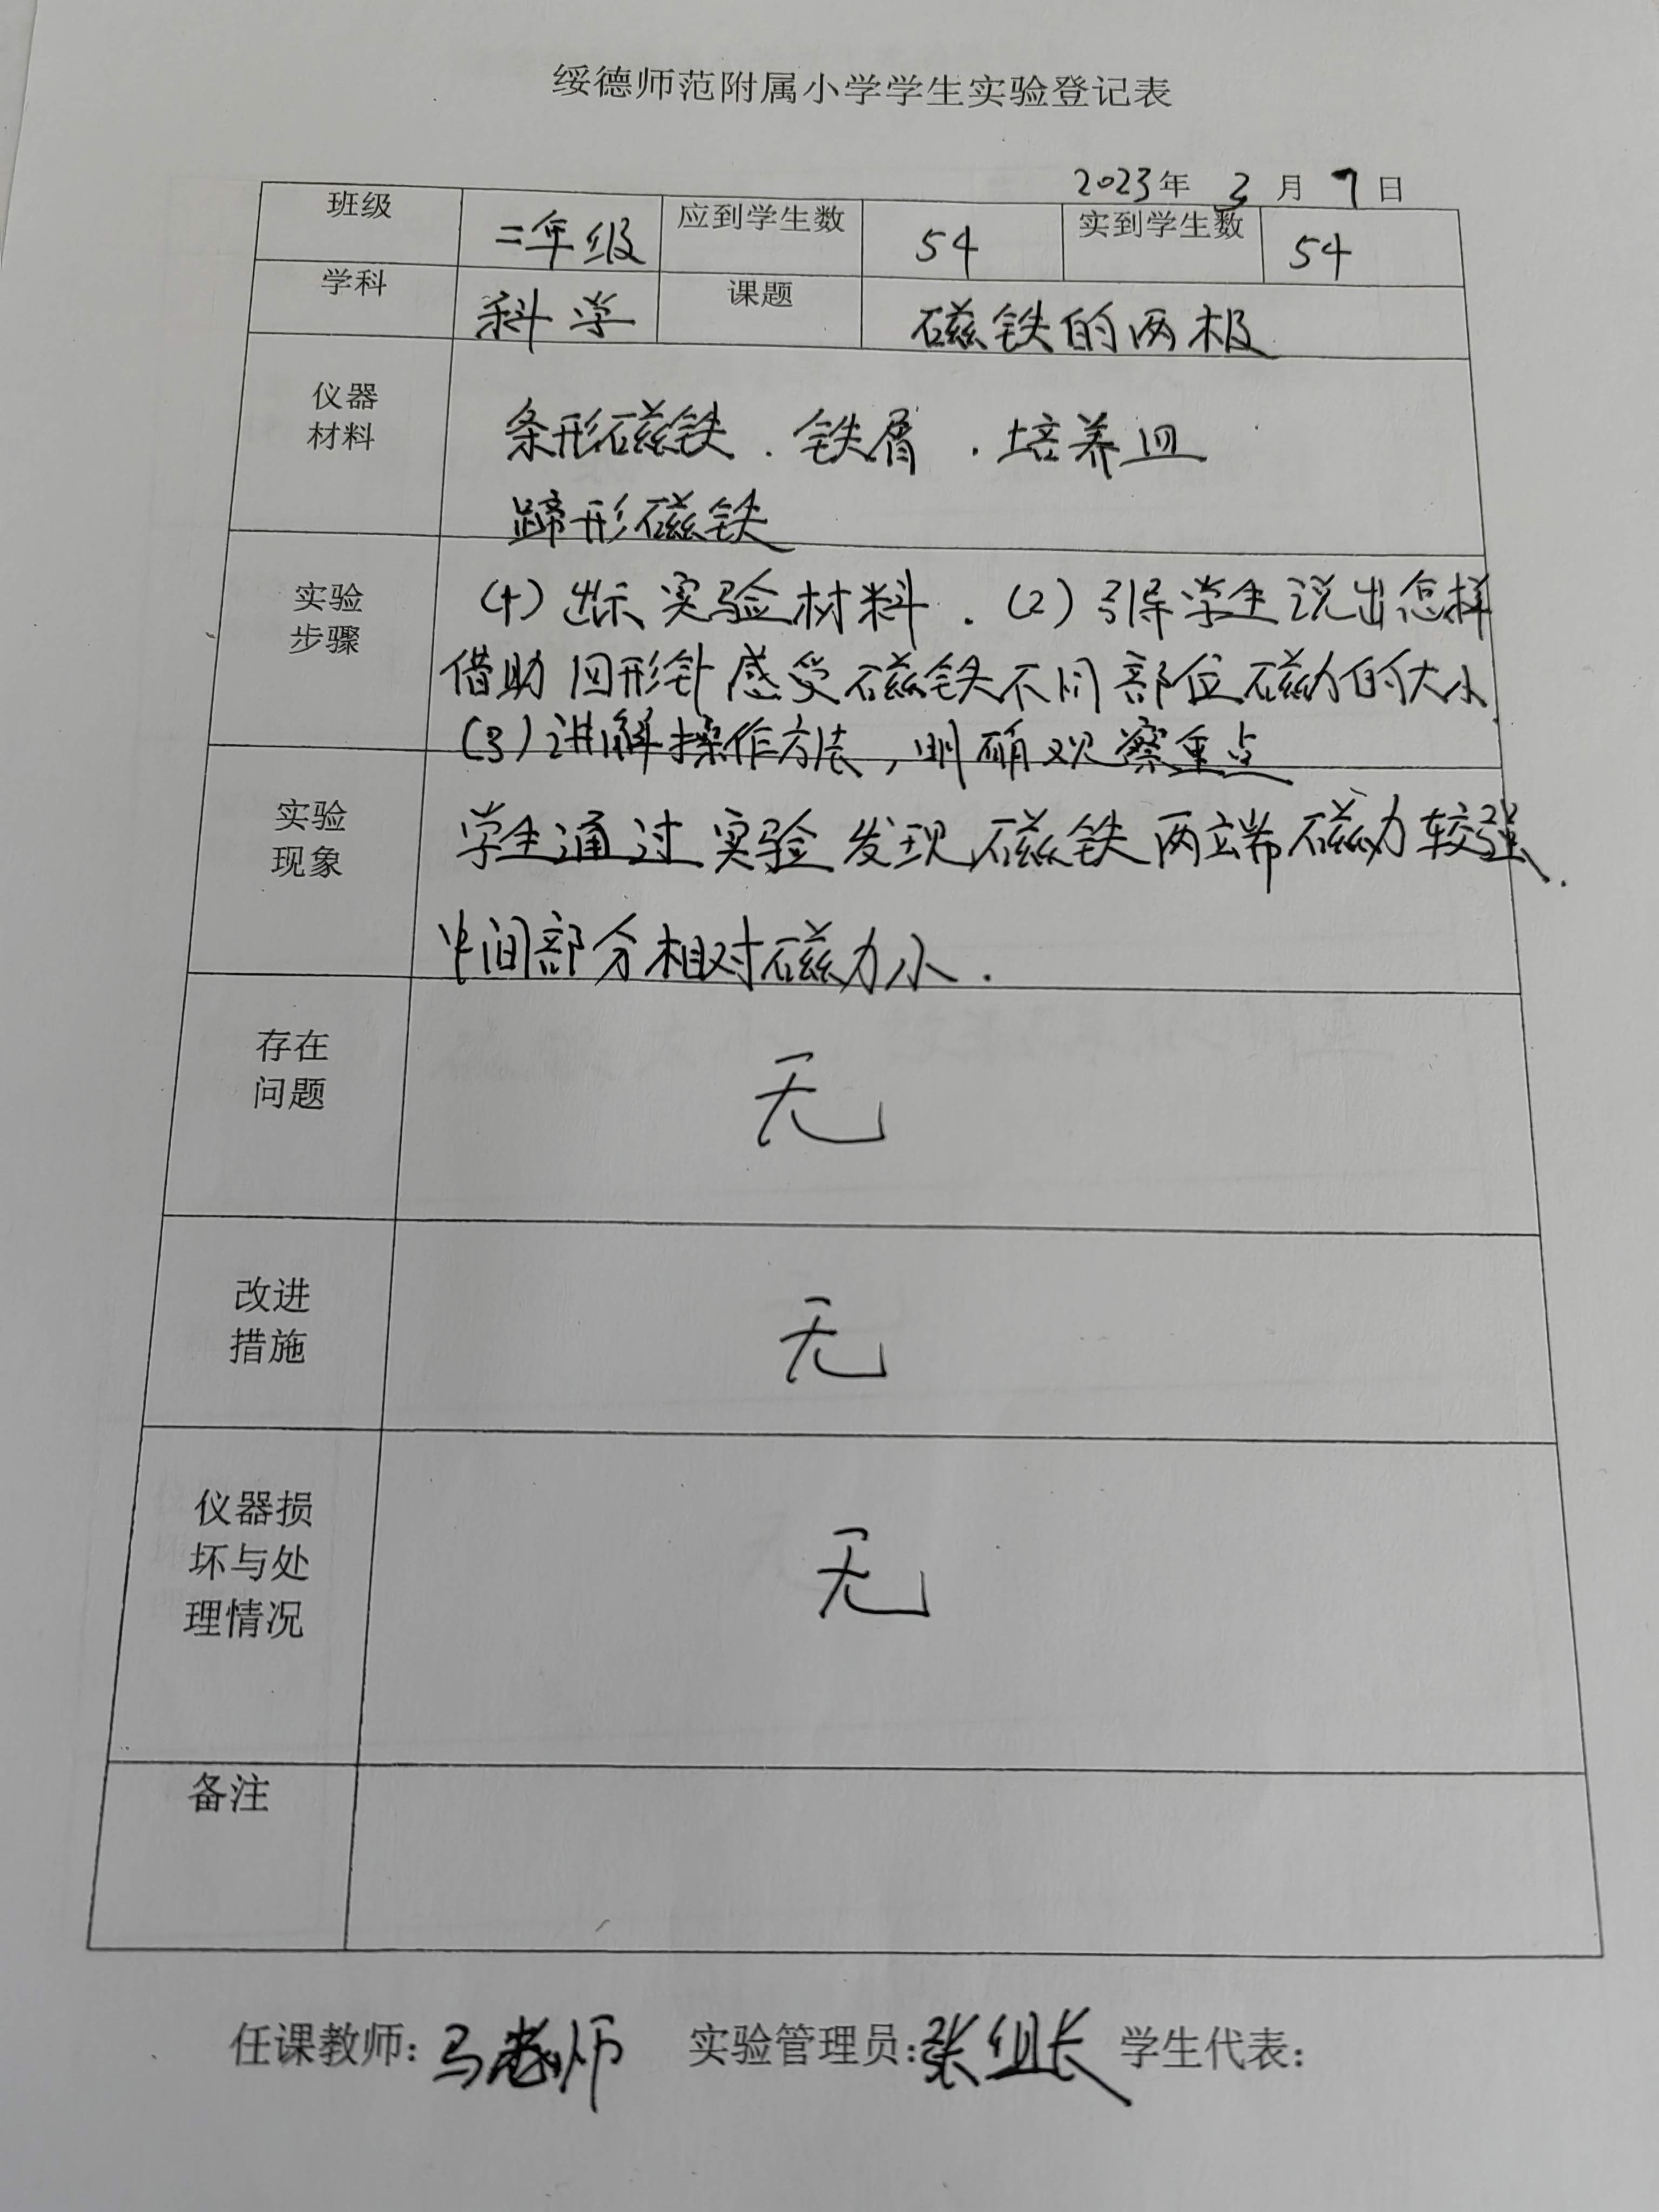 绥德师范附属小学学生实验登记表
2023年 3 月 7 日
班级 二年级 应到学生数 54 实到学生数 54
学科 科学 课题 磁铁的两极
仪器
材料
条形磁铁.铁屑.培养皿
蹄形磁铁
实验
步骤
(1)出示实验材料.(2)引导学生说出怎样
借助回形针感受磁铁不同部位磁力的大小
(3)讲解操作方法,明确观察重点
实验
现象
学生通过实验发现磁铁两端磁力较强.
中间部分相对磁力小.
存在
问题
无
改进
措施
无
仪器损
坏与处
理情况
无
备注
任课教师:马老师 实验管理员:张组长 学生代表: